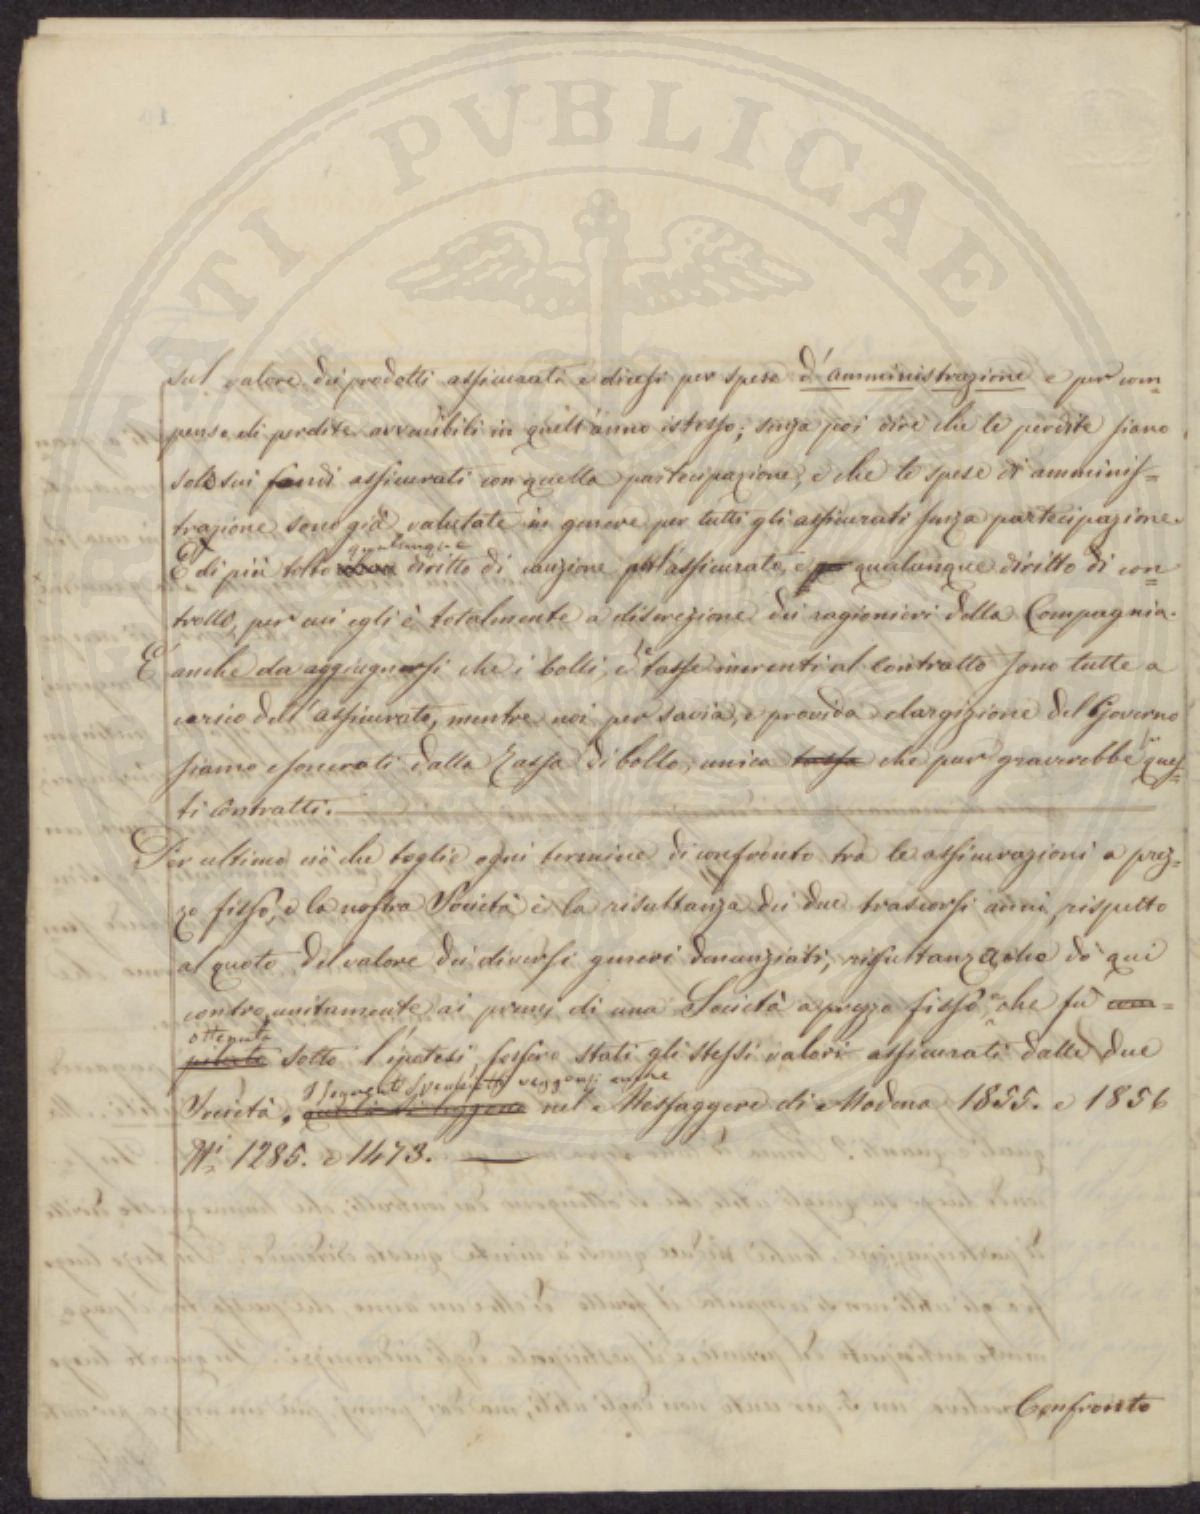 UTILITATI PUBLICAE
sul valore dei prodotti assicurati e dicesi per spese d'amministrazione e per com=
penso di perdite avvenibili in quell'anno istesso; senza poi dire che le perdite siano
solo sui fondi assicurati con quella partecipazione, e che le spese di amminis=
trazione sono già valutate in genere per tutti gli assicurati senza partecipazione.
qualunque
E di più tolto diritto di cauzione per l'assicurato, e qualunque diritto di con=
trollo, per cui egli è totalmente a discrezione dei ragionieri della Compagnia.
È anche da aggiugnersi che i bolli, e le tasse inerenti al contratto sono tutte a
carico dell'assicurato, mentre noi per savia, e provida elargizione del Governo
siamo esonerati dalla Tassa di bollo, unica tassa che pur graverebbe ques=
ti contratti.
Per ultimo ciò che toglie ogni termine di confronto tra le assicurazioni a prez=
zo fisso, e la nostra Società è la risultanza dei due trascorsi anni rispetto
al quoto del valore dei diversi generi denunziati, risultanza che dò qui
contro unitamente ai premj di una Società a prezzo fisso, che fù
ottenuta
sotto l'ipotesi fossero stati gli stessi valori assicurati dalle due
veggonsi anche
Società, quali si leggono nel Messaggere di Modena 1855. e 1856
Ni 1285. e 1473.
Confronto